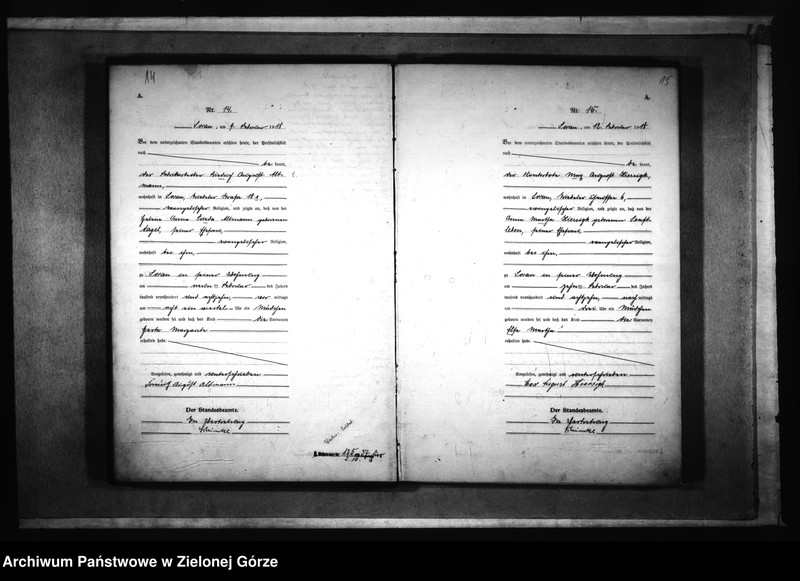 14
A.
Nr. 14.
Sorau, am 9. Februar 1918
Vor dem unterzeichneten Standesbeamten erschien heute, der Persönlichkeit
nach
be kannt,
der Fabrikarbeiter Heinrich August Alt-
mann,
wohnhaft in Sorau,
evangelischer Religion, und zeigte an, daß von der
Anna Altmann geborenen
seiner Ehefrau,
evangelischer Religion,
wohnhaft bei ihm,
zu Sorau in seiner Wohnung
am neunten Februar des Jahres
tausend neunhundert und achtzehn, vor mittags
um acht ein viertel Uhr ein Mädchen
geboren worden sei und daß das Kind die Vornamen
Herta Margarete
erhalten habe.
Vorgelesen, genehmigt und unterschrieben
Heinrich August Altmann
Der Standesbeamte.
In Vertretung
15
A.
Nr. 15.
Sorau, am 12. Februar 1918
Vor dem unterzeichneten Standesbeamten erschien heute, der Persönlichkeit
nach
be kannt,
der Max August
wohnhaft in Sorau, Chaussee 6,
evangelischer Religion, und zeigte an, daß von der
Anna Martha geborenen Sanft-
leben, seiner Ehefrau,
evangelischer Religion,
wohnhaft bei ihm,
zu Sorau in seiner Wohnung
am zehnten Februar des Jahres
tausend neunhundert und achtzehn, nach mittags
um drei Uhr ein Mädchen
geboren worden sei und daß das Kind die Vornamen
Else Martha
erhalten habe.
Vorgelesen, genehmigt und unterschrieben
Max August
Der Standesbeamte.
In Vertretung
Archiwum Państwowe w Zielonej Górze